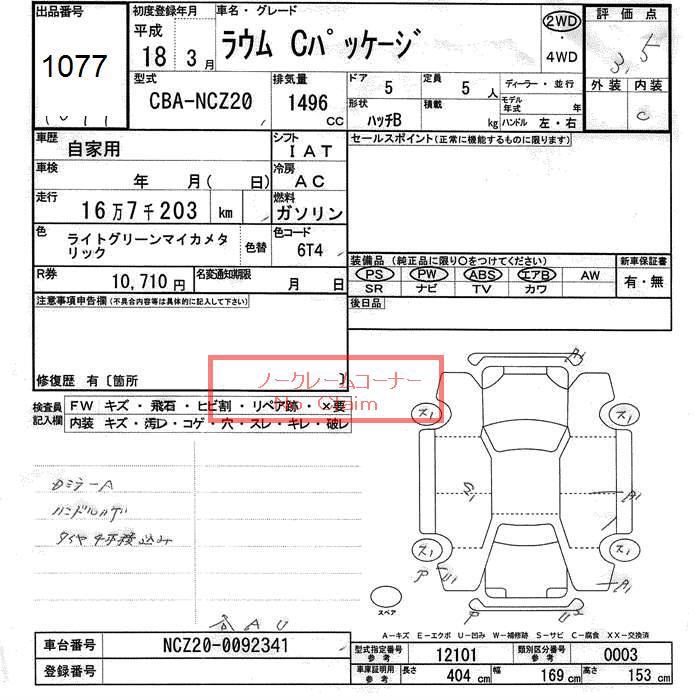 出品番号
1077
初度登録年月
平成
18年 3月
車名・グレード
ラウム Cパッケージ
2WD
・
4WD
評価点
3.5
外装 内装
C
型式
CBA-NCZ20
排気量
1496
CC
ドア 5
定員 5 人
形状 ハッチB
積載 kg
ディーラー・並行
モデル年式 年
ハンドル 左・右
車歴
自家用
シフト
IAT
セールスポイント(正常に機能するものに限ります)
車検
年 月( 日)
冷房
AC
走行
16万7千203 km
燃料
ガソリン
色
ライトグリーンマイカメタ
リック
色替
色コード
6T4
装備品 (純正品に限り○をつけてください)
PS PW ABS エアB AW
SR ナビ TV カワ
新車保証書
有・無
R券
10,710 円
名変通知期限
月 日
後日品
注意事項申告欄(不具合内容等は具体的に記入して下さい)
修復歴 有〔箇所 〕
ノークレームコーナー
No Claim
検査員
記入欄
FW キズ・飛石・ヒビ割・リペア跡・×要
内装 キズ・汚レ・コゲ・穴・スレ・キレ・破レ
DミラーA
ハンドルカゲ
タイヤ4本積込み
A1
ス1
ス1
A1
ス1
ス1
U1
A1
P
スペア
A-キズ E-エクボ U-凹み W-補修跡 S-サビ C-腐食 XX-交換済
車台番号
NCZ20-0092341
登録番号
型式指定番号
参考
12101
類別区分番号
参考
0003
車庫証明用
参考
長さ 404 cm
幅 169 cm
高さ 153 cm